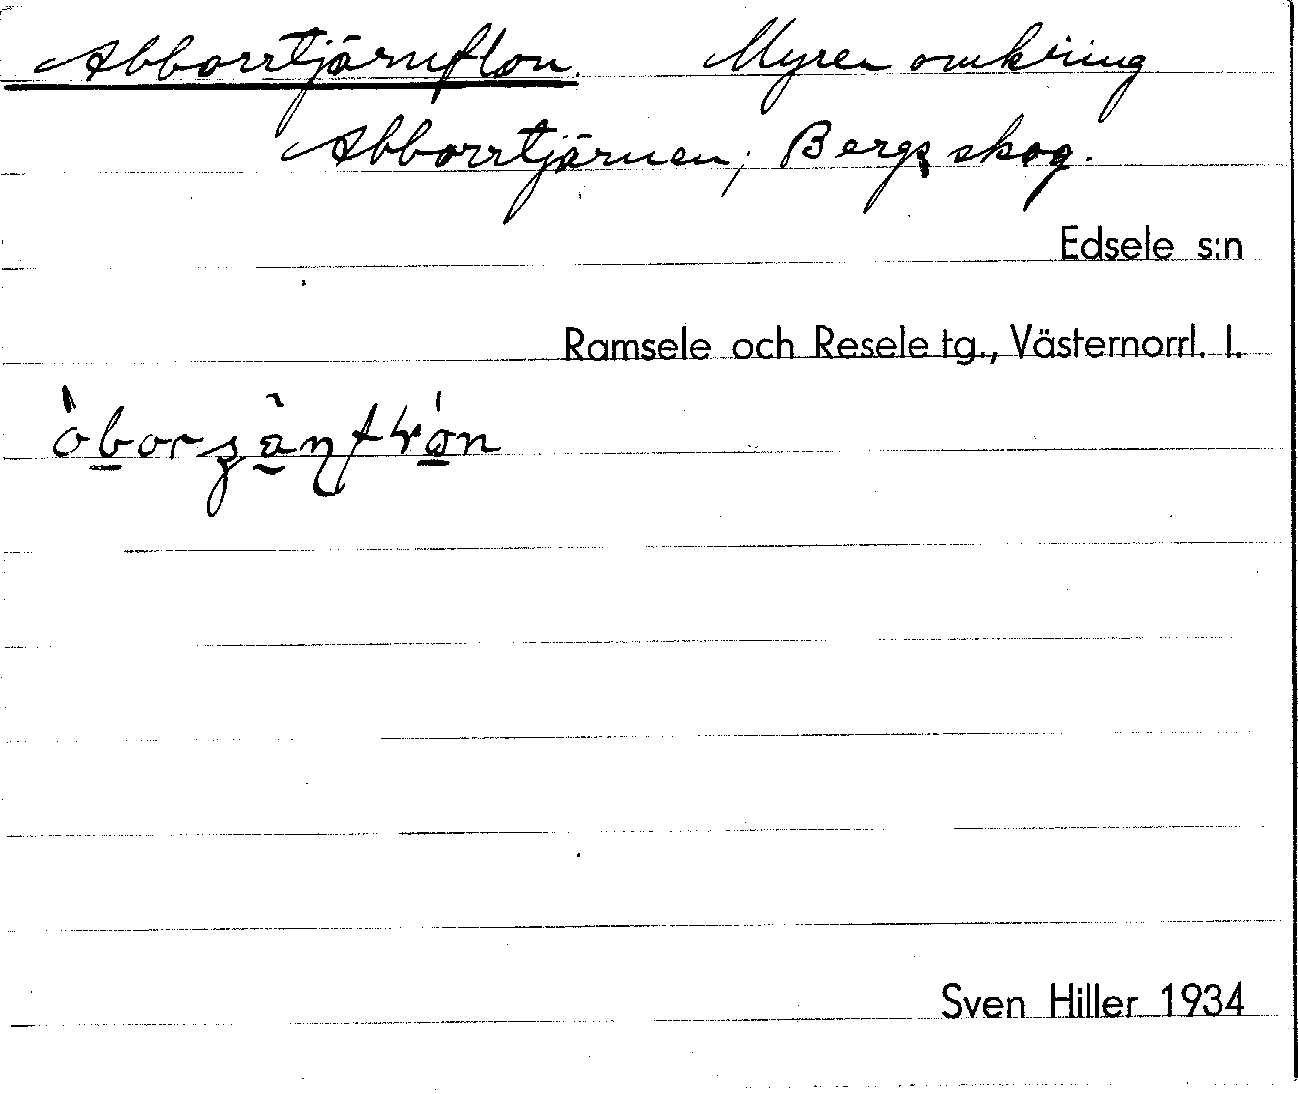 Abborrtjärnflon. Myren omkring
Abborrtjärnen, Bergs skog.
Edsele s:n
Ramsele och Resele tg., Västernorrl. l.
Sven Hiller 1934